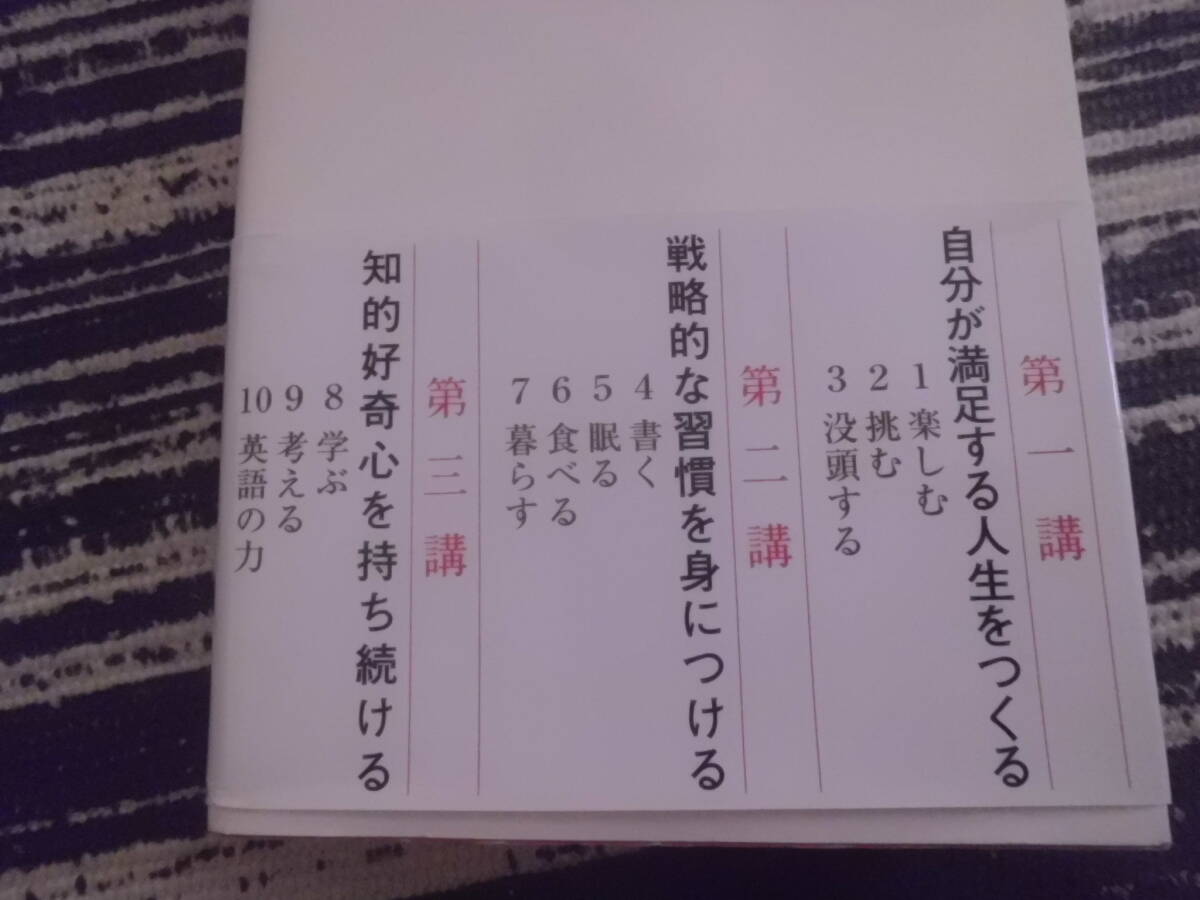 第一講
自分が満足する人生をつくる
1 楽しむ
2 挑む
3 没頭する
第二講
戦略的な習慣を身につける
4 書く
5 眠る
6 食べる
7 暮らす
第三講
知的好奇心を持ち続ける
8 学ぶ
9 考える
10 英語の力